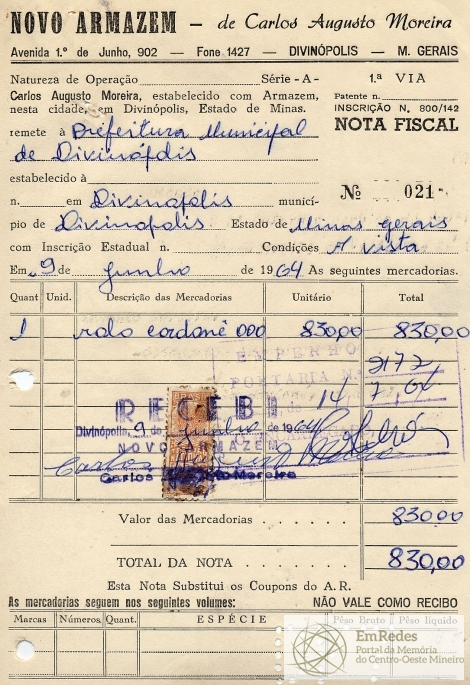 NOVO ARMAZEM — de Carlos Augusto Moreira
Avenida 1.º de Junho, 902 — Fone 1427 — DIVINÓPOLIS — M. GERAIS
Natureza de Operação Série -A- 1.ª VIA
Carlos Augusto Moreira, estabelecido com Armazem, Patente n.
nesta cidade, em Divinópolis, Estado de Minas. INSCRIÇÃO N. 800/142
remete à Prefeitura Municipal NOTA FISCAL
de Divinópolis
estabelecido à
n. em Divinópolis municí- Nº 021
pio de Divinopolis Estado de Minas gerais
com Inscrição Estadual n. Condições A vista
Em, 9 de Junho de 1964 As seguintes mercadorias.
Quant Unid. Descrição das Mercadorias Unitário Total
1 ralo cordonê 000 830,00 830,00
EMPENHO
2172
PORTARIA N.
14 7 64
RECEBI
Divinópolis, 9 de Junho de 1964
NOVO ARMAZEM
Carlos Augusto Moreira
Valor das Mercadorias 830,00
TOTAL DA NOTA 830,00
Esta Nota Substitui os Coupons do A.R.
As mercadorias seguem nos seguintes volumes: NÃO VALE COMO RECIBO
Marcas Números Quant. ESPÉCIE Pêso Bruto Pêso líquido
EmRedes
Portal da Memória
do Centro-Oeste Mineiro